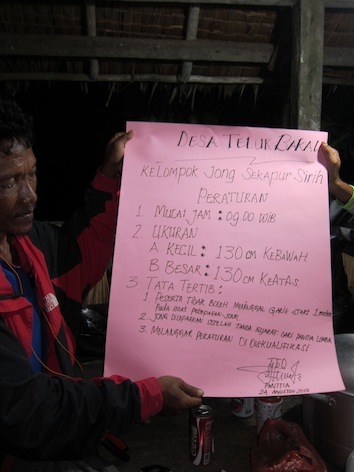 DESA TELUK BAKAU
KELOMPOK JONG SEKAPUR SIRIH
PERATURAN
1 MULAI JAM : 09.00 WIB
2 UKURAN
A KECIL : 130 cm KEBAWAH
B BESAR : 130 cm KEATAS
3 TATA TERTIB :
1 PESERTA TIDAK BOLEH GARIS START 1 meter
PADA SAAT PELEPASAN JONG
2 JONG DILEPASKAN SETELAH TANDA ISYARAT DARI PANITIA LOMBA
3. MELANGGAR PERATURAN DI DISKUALIFIKASI
PANITIA
24 AGUSTUS 2012